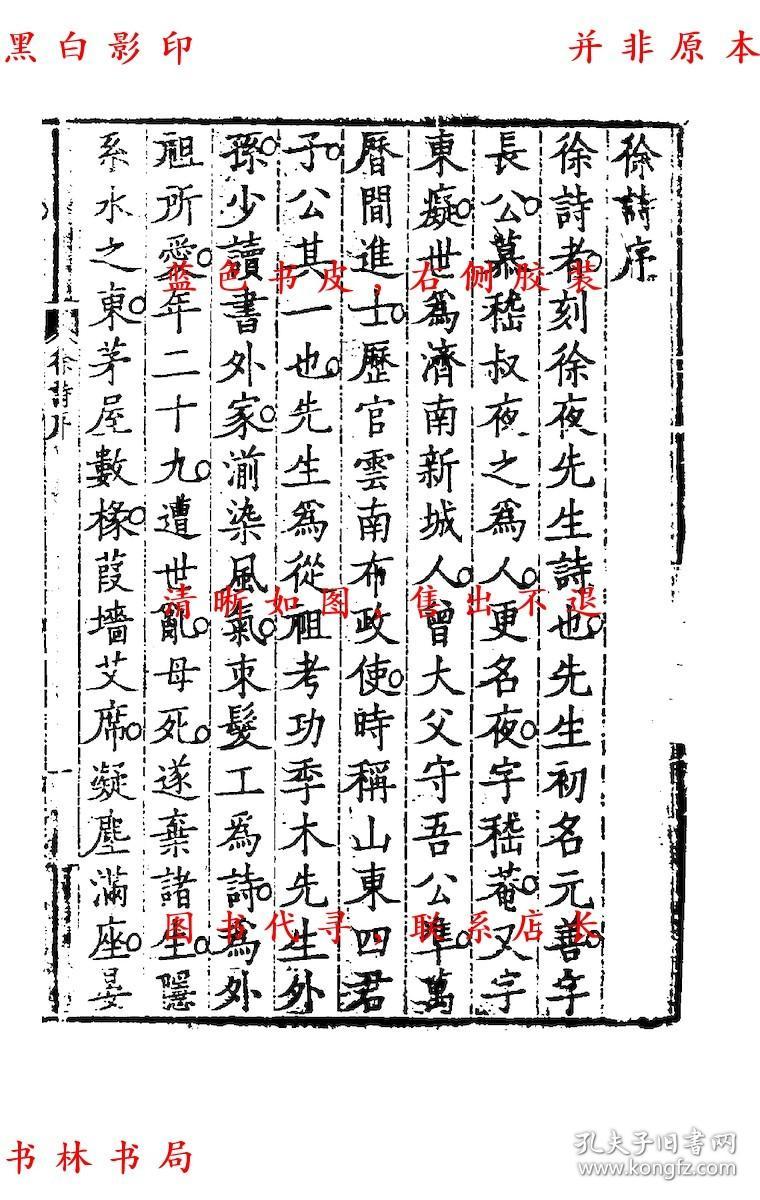 黑白影印
并非原本
徐詩序
徐詩者刻徐夜先生詩也先生初名元善字
長公慕嵇叔夜之為人更名夜字嵇菴又字
東癡世為濟南新城人曾大父守吾公準萬
曆間進士歷官雲南布政使時稱山東四君
子公其一也先生為從祖考功季木先生外
孫少讀書外家漸染風氣束髮工為詩為外
祖所愛年二十九遭世亂母死遂棄諸生隱
系水之東茅屋數椽葭墻艾席凝塵滿座晏
徐詩序
一
蓝色书皮,右侧胶装
清晰如图,售出不退
图书代寻,联系店长
书林书局
孔夫子旧书网
www.kongfz.com